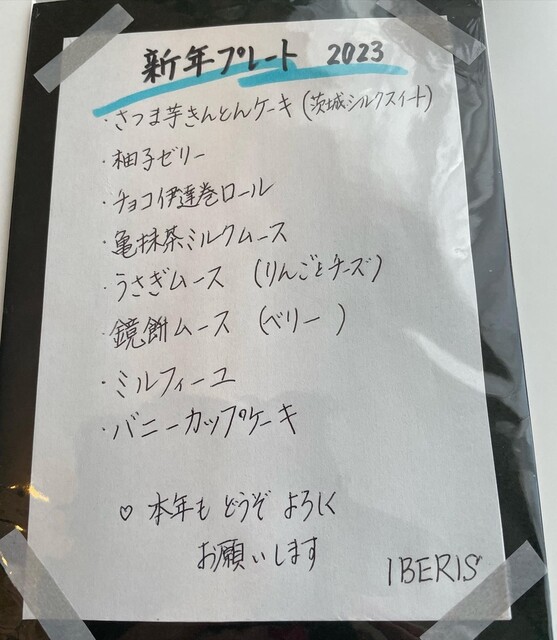 新年プレート 2023
・さつま芋きんとんケーキ (茨城シルクスイート)
・柚子ゼリー
・チョコ伊達巻ロール
・亀抹茶ミルクムース
・うさぎムース (りんごとチーズ)
・鏡餅ムース (ベリー)
・ミルフィーユ
・バニーカップケーキ
♡ 本年も どうぞ よろしく
お願いします
IBERIS